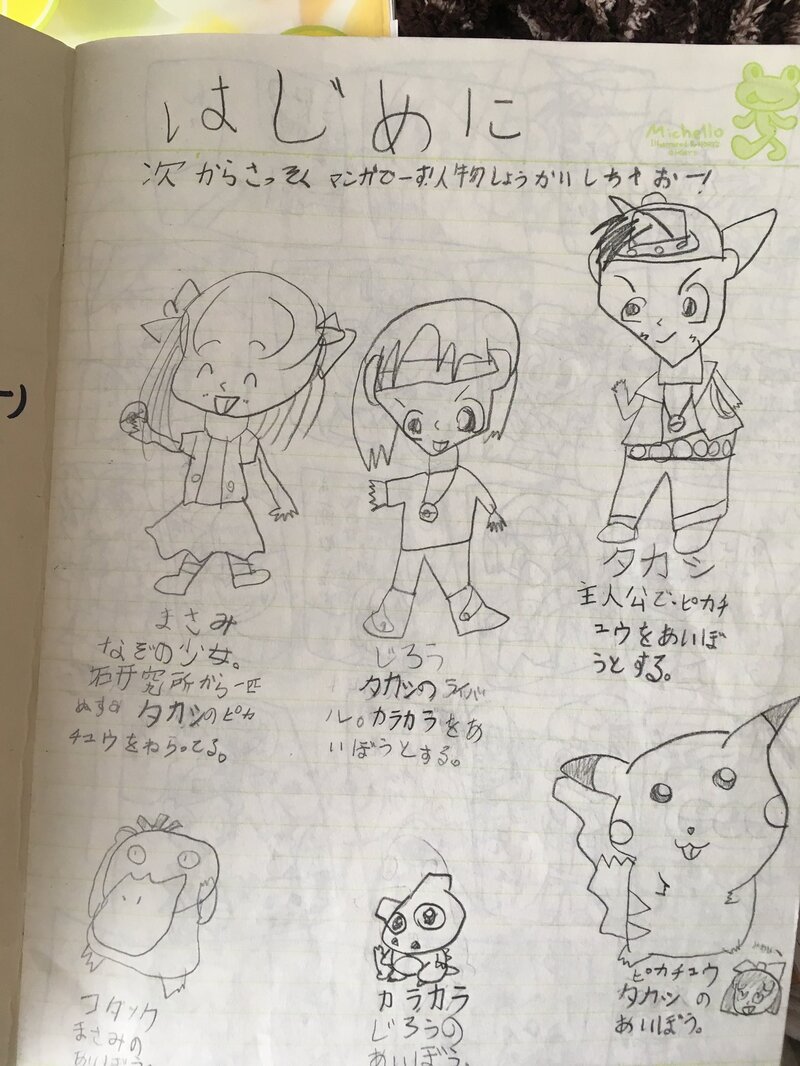 はじめに
Michello
次からさっそくマンガでーす!人物しょうかいしちゃおー!
タカシ
主人公で、ピカチ
ュウをあいぼ
うとする。
まさみ
なぞの少女。
石井究所から一匹
ぬすみ タカシのピカ
チュウをねらってる。
じろう
タカシのライバ
ル。カラカラをあ
いぼうとする。
コダック
まさみの
あいぼう。
カラカラ
じろうの
あいぼう。
ピカチュウ
タカシの
あいぼう。